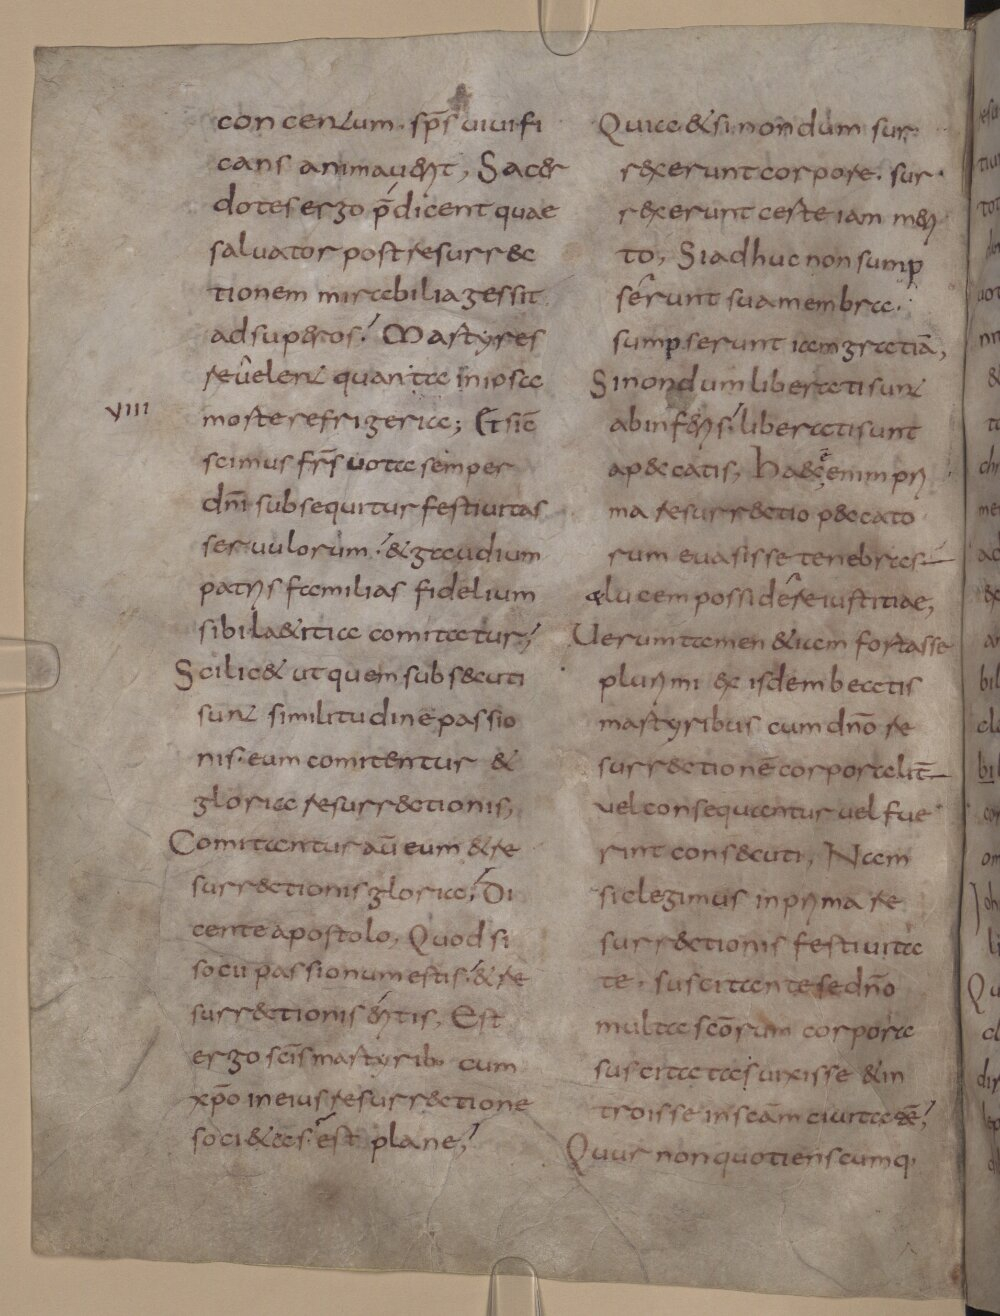 concentum. sp̄s uiuifi
cans animauerit, Sacer
dotes ergo p̄dicent quae
saluator post resurrec
tionem mirabilia gessit
ad superos. Martyres
reuelent quanta in ipsa
morte refrigeria; Et sic̄
VIII
scimus fr̄s uota semper
dn̄i subsequitur festiuitas
seruulorum. & gaudium
patris familias fidelium
sibi laetitia comitatur,
Scilicet ut quem subsecuti
sunt similitudinē passio
nis. eum comitentur &
gloria resurrectionis,
Comitantur aū eum & re
surrectionis gloria, Di
cente apostolo, Quod si
socii passionum estis. & re
surrectionis eritis, Est
ergo sc̄is martyrib· cum
xp̄o in eius resurrectione
societas. est plane,
Quia & si nondum sur
rexerunt corpore. sur
rexerunt certe iam meri
to, Si adhuc non sump
serunt sua membra.
sumpserunt iam gratiā,
Si nondum liberati sunt
ab inferis. liberati sunt
a peccatis, Haec ē enim pri
ma resurrectio peccato
rum euasisse tenebras.
& lucem possidere iustitiae,
Uerum tamen etiam fortasse
plurimi ex isdem beatis
martyribus cum dn̄o re
surrectionē corporalit̄
uel consequantur uel fue
rint consecuti, Nam
si elegimus in prima re
surrectionis festiuita
te. suscitante se dn̄o
multa sc̄orum corpora
suscitata surxisse & in
troisse in sc̄am ciuitatē,
Quur non quotienscumq·